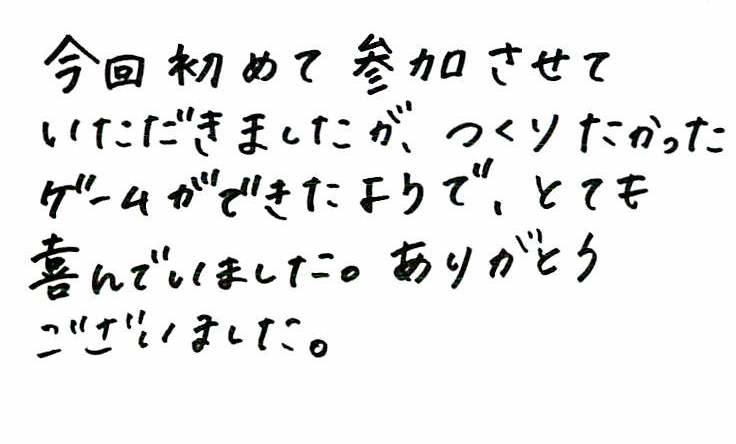 今回初めて参加させて
いただきましたが、つくりたかった
ゲームができたようで、とても
喜んでいました。ありがとう
ございました。